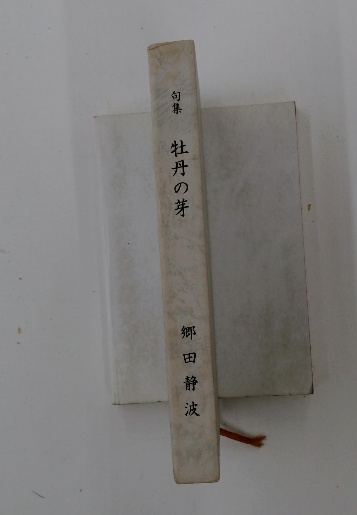 句集
牡丹の芽
郷田静波